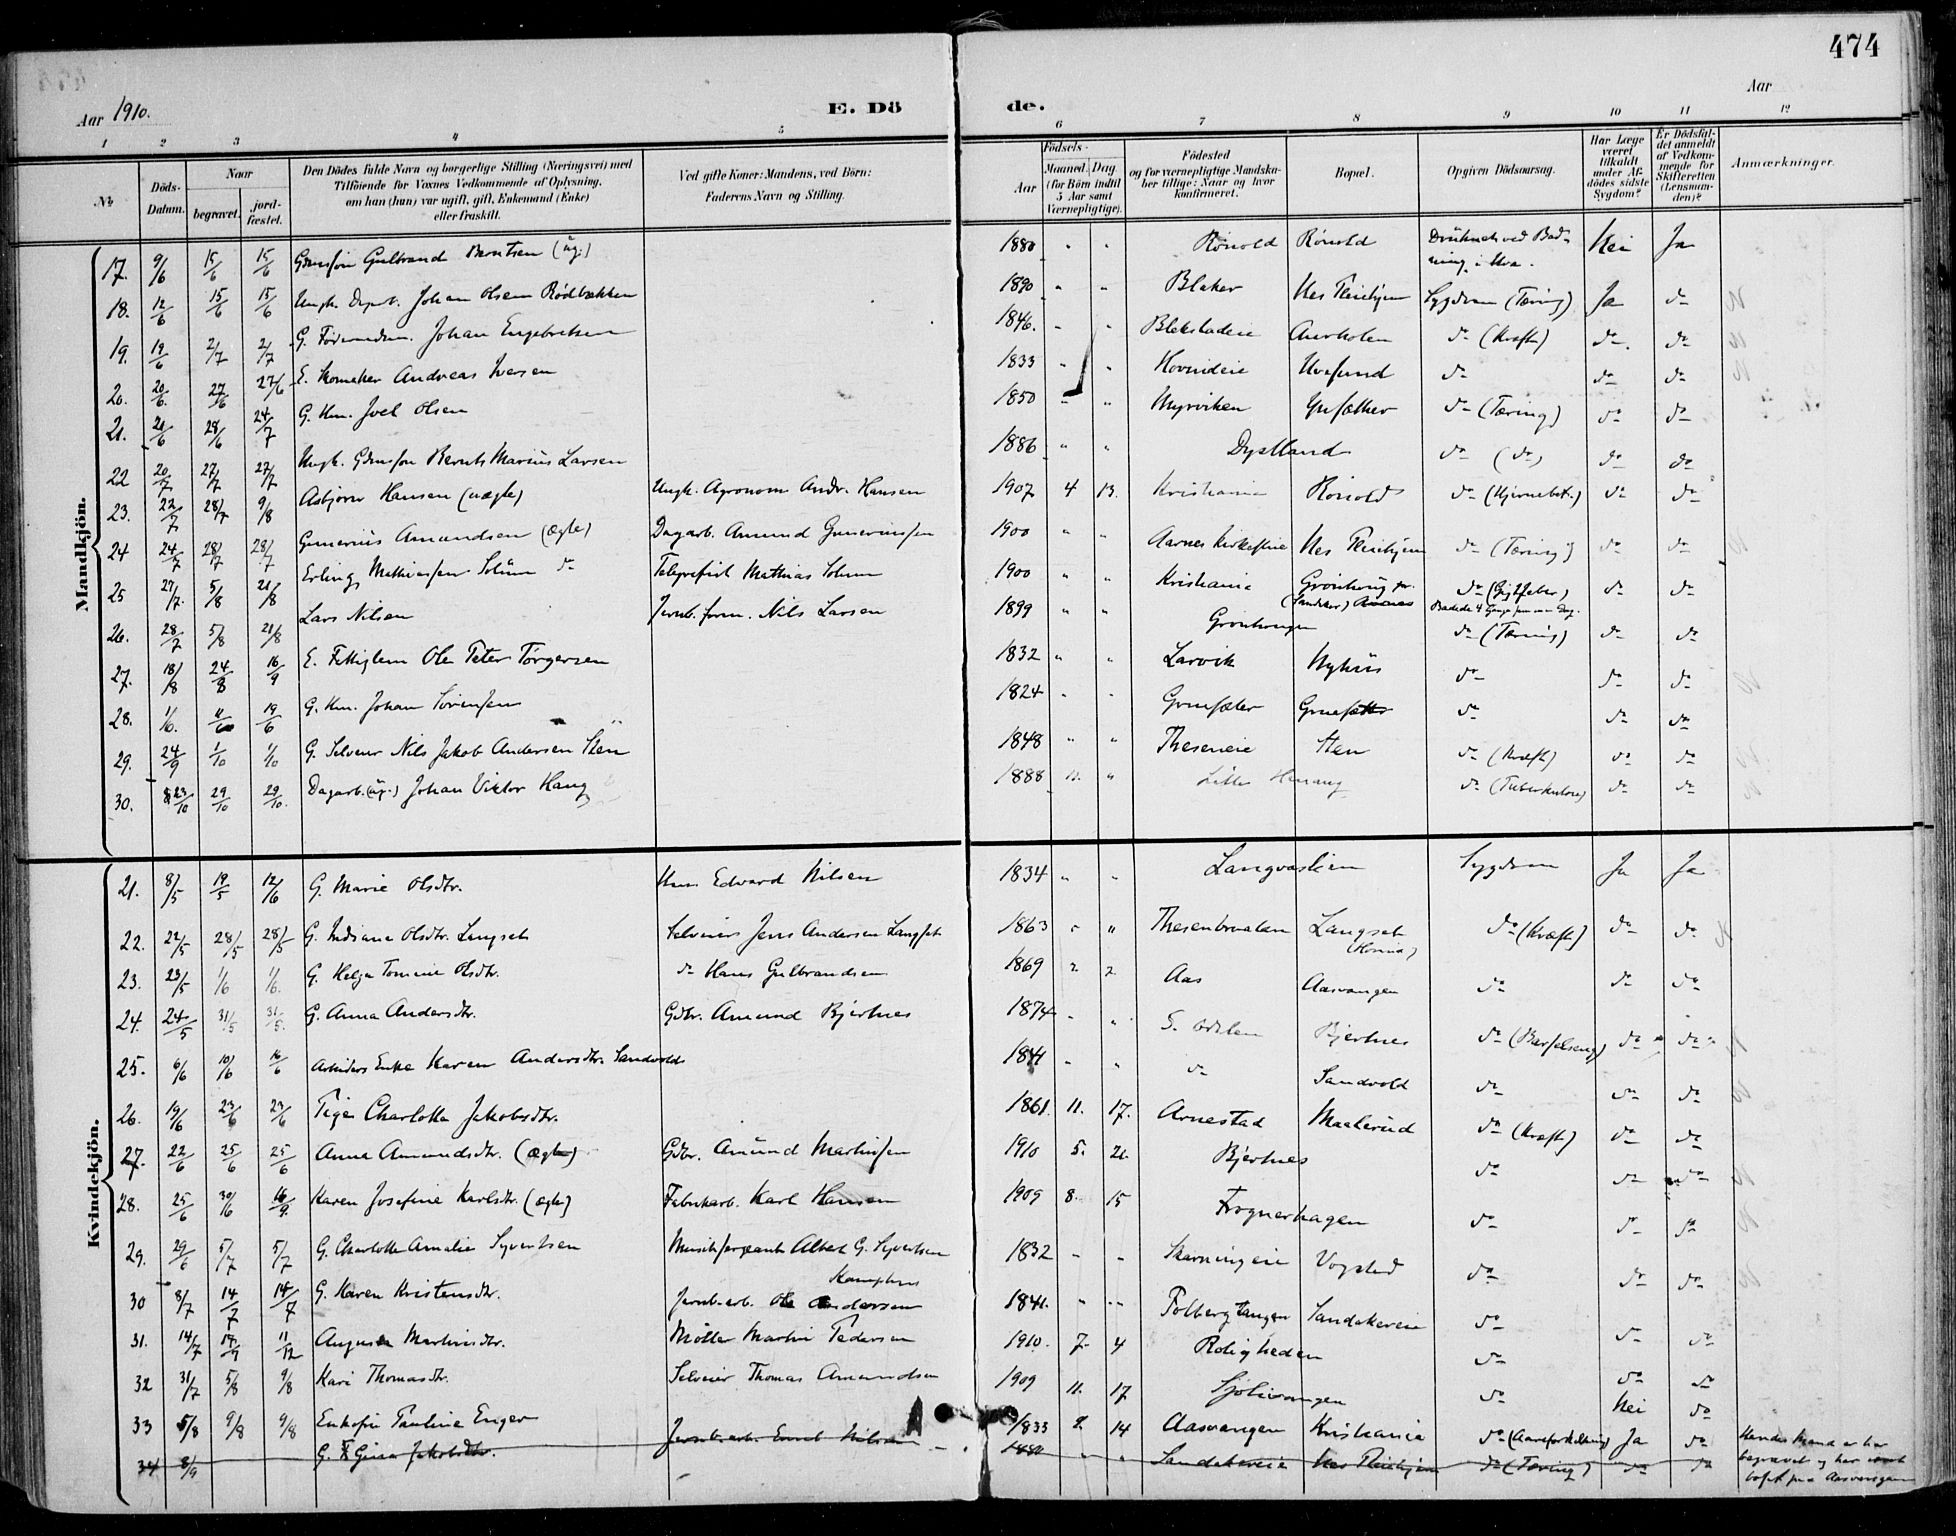 474
Aar 1910.
E. Dö
de.
Aar
1 2 3 4 5 6 7 8 9 10 11 12
№
Döds-Datum.
Naar
begravet.
jord-fæstet.
Den Dödes fulde Navn og borgerlige Stilling (Næringsvei) med
Tilföiende for Voxnes Vedkommende af Oplysning,
om han (hun) var ugift, gift, Enkemand (Enke)
eller fraskilt.
Ved gifte Koner: Mandens, ved Börn:
Faderens Navn og Stilling.
Födsels-
Aar
Maaned. Dag
(for Börn indtil
5 Aar samt
Værnepligtige).
Födested
og for værnepligtige Mandska-
ber tillige: Naar og hvor
konfirmeret.
Bopæl.
Opgiven Dödsaarsag.
Har Læge
været
tilkaldt
under Af-
dödes sidste
Sygdom?
Er Dödsfal-
det anmeldt
af Vedkom-
mende for
Skifteretten
(Lensman-
den)?
Anmærkninger.
Mandkjön.
17. 9/6 15/6 15/6 Gulbrand Berntsen (ug.) 1880 " " Rönold Rönold Druknet ved Bad-
ning i Aaa. Nei Ja
18. 12/6 15/6 15/6 Ungk. Johan Olsen Rödbækken 1890 " " Blaker Nes Pleiehjem Sygdom (Tæring) Ja do
19. 19/6 2/7 2/7 G. Johan Engebretsen 1846. " " Aurholen do (Kræft) do do
20. 20/6 27/6 27/6 E. Skomaker Andreas Iversen 1833 " " Hovindeie Uvesund do do do
21. 21/6 28/6 24/7 G. Hm. Joel Olsen 1850 " " Myrviken do (Tæring) do do
22 20/7 27/7 27/7 Ungk. Gdmssøn Bernt Marius Larsen 1886 " " Dystland do (do) do do
23. 22/7 28/7 9/8 Asbjørn Hansen (uægte) Ungk. Agronom Andr. Hansen 1907 4 13. Kristiania Rönold do do do
24 24/7 28/7 28/7 Gunerius Amundsen (ægte) Dagarb. Amund Guneriussen 1900 " " Nes Pleiehjem do (Tæring) do do
25 27/7. 5/8 21/8 Erling Mathiassen Solum do Telegrafist Mathias Solum 1900 " " Kristiania do (Gigtfeber) do do
Badede 4 Gange
26. 28/7 5/8 21/8 Lars Nilsen Jernb.form. Nils Larsen 1899 " " do (Tæring) do do
27. 18/8 24/8 16/9 E. Fattiglem Ole Peter Torgersen 1832 " " Larvik Nyhus do do do
28. 1/6. 11/6 19/6 G. Hm. Johan Sörensen 1824 " " do do do
29. 24/9 1/10 1/10 G. Selveier Nils Jakob Andersen Sten 1848 " " Theseneie Sten do (Kræft) do do
30. 23/10 29/10 29/10. Dagarb. (ug.) Johan Viktor Haug 1888 " " do (Tuberkulose) do do
Kvindekjön.
21. 8/5 19/5 12/6 G. Marie Olsdtr. Hm. Edvard Nilsen 1834 " " Sygdom Ja Ja
22. 22/5 28/5 28/5 G. Indiana Olsdtr. Langset Selveier Jens Andersen Langset 1863 " " Thesenbraaten Langset do (Kræft) do do
23. 23/5 1/6 1/6. G. Helga Tomine Olsdtr. do Hans Gulbrandsen 1869 2 2 Aas Aasvangen do do do
24. 24/5 31/5 31/5. G. Anna Andersdtr. Gdbr. Amund Bjertnes 1874 " " Bjertnes do (Barselseng) do do
25. 6/6 10/6 16/6 Arbeiders Enke Karen Andersdtr. Sandvold 1841 " " do Sandvold do do do
26. 19/6 23/6 23/6 Pige Charlotte Jakobsdtr. 1861. 11. 17. Arnestad Maalerud do (Kræft) do do
27. 22/6 25/6 25/6 Anna Amundsdtr. (ægte) Gdbr. Amund Martinsen 1910 5. 21. Bjertnes do do do
28. 25/6 30/6 16/9. Karen Josefine Karlsdtr. (ægte) Fabrikarb. Karl Hansen 1909 8. 15 Frognerhagen do do do
29. 29/6 5/7 5/7 G. Charlotte Amalie Syvertsen Musiksergeant Albert G. Syvertsen
Kamphus 1832 " " Vogsted do do do
30 8/7 14/7 14/7 G. Karen Kristensdtr. Jernb.arb. Ole Andersen 1841. " " Folbergtangen Sandakereie do do do
31. 14/7 17/9 11/12 Augusta Martinsdtr. Møller Martin Pedersen 1910. 7. 4 Roligheden do do do
32 31/7 5/8 9/8 Kari Thomasdtr. Selveier Thomas Amundsen 1909 11. 17 do Nei do
33 5/8 9/8 9/8 Enkefru Pauline Enger 1833 2. 14 Aasvangen Kristiania do (Aareforkalkning) Ja do Hendes Mand er her
begravet og har
bopæl paa Aasvangen
34 8/9 G. Gina Jakobsdtr. Jernb.arb. Nilsen " " Sandakereie Nes Pleiehjem do (Tæring) do do